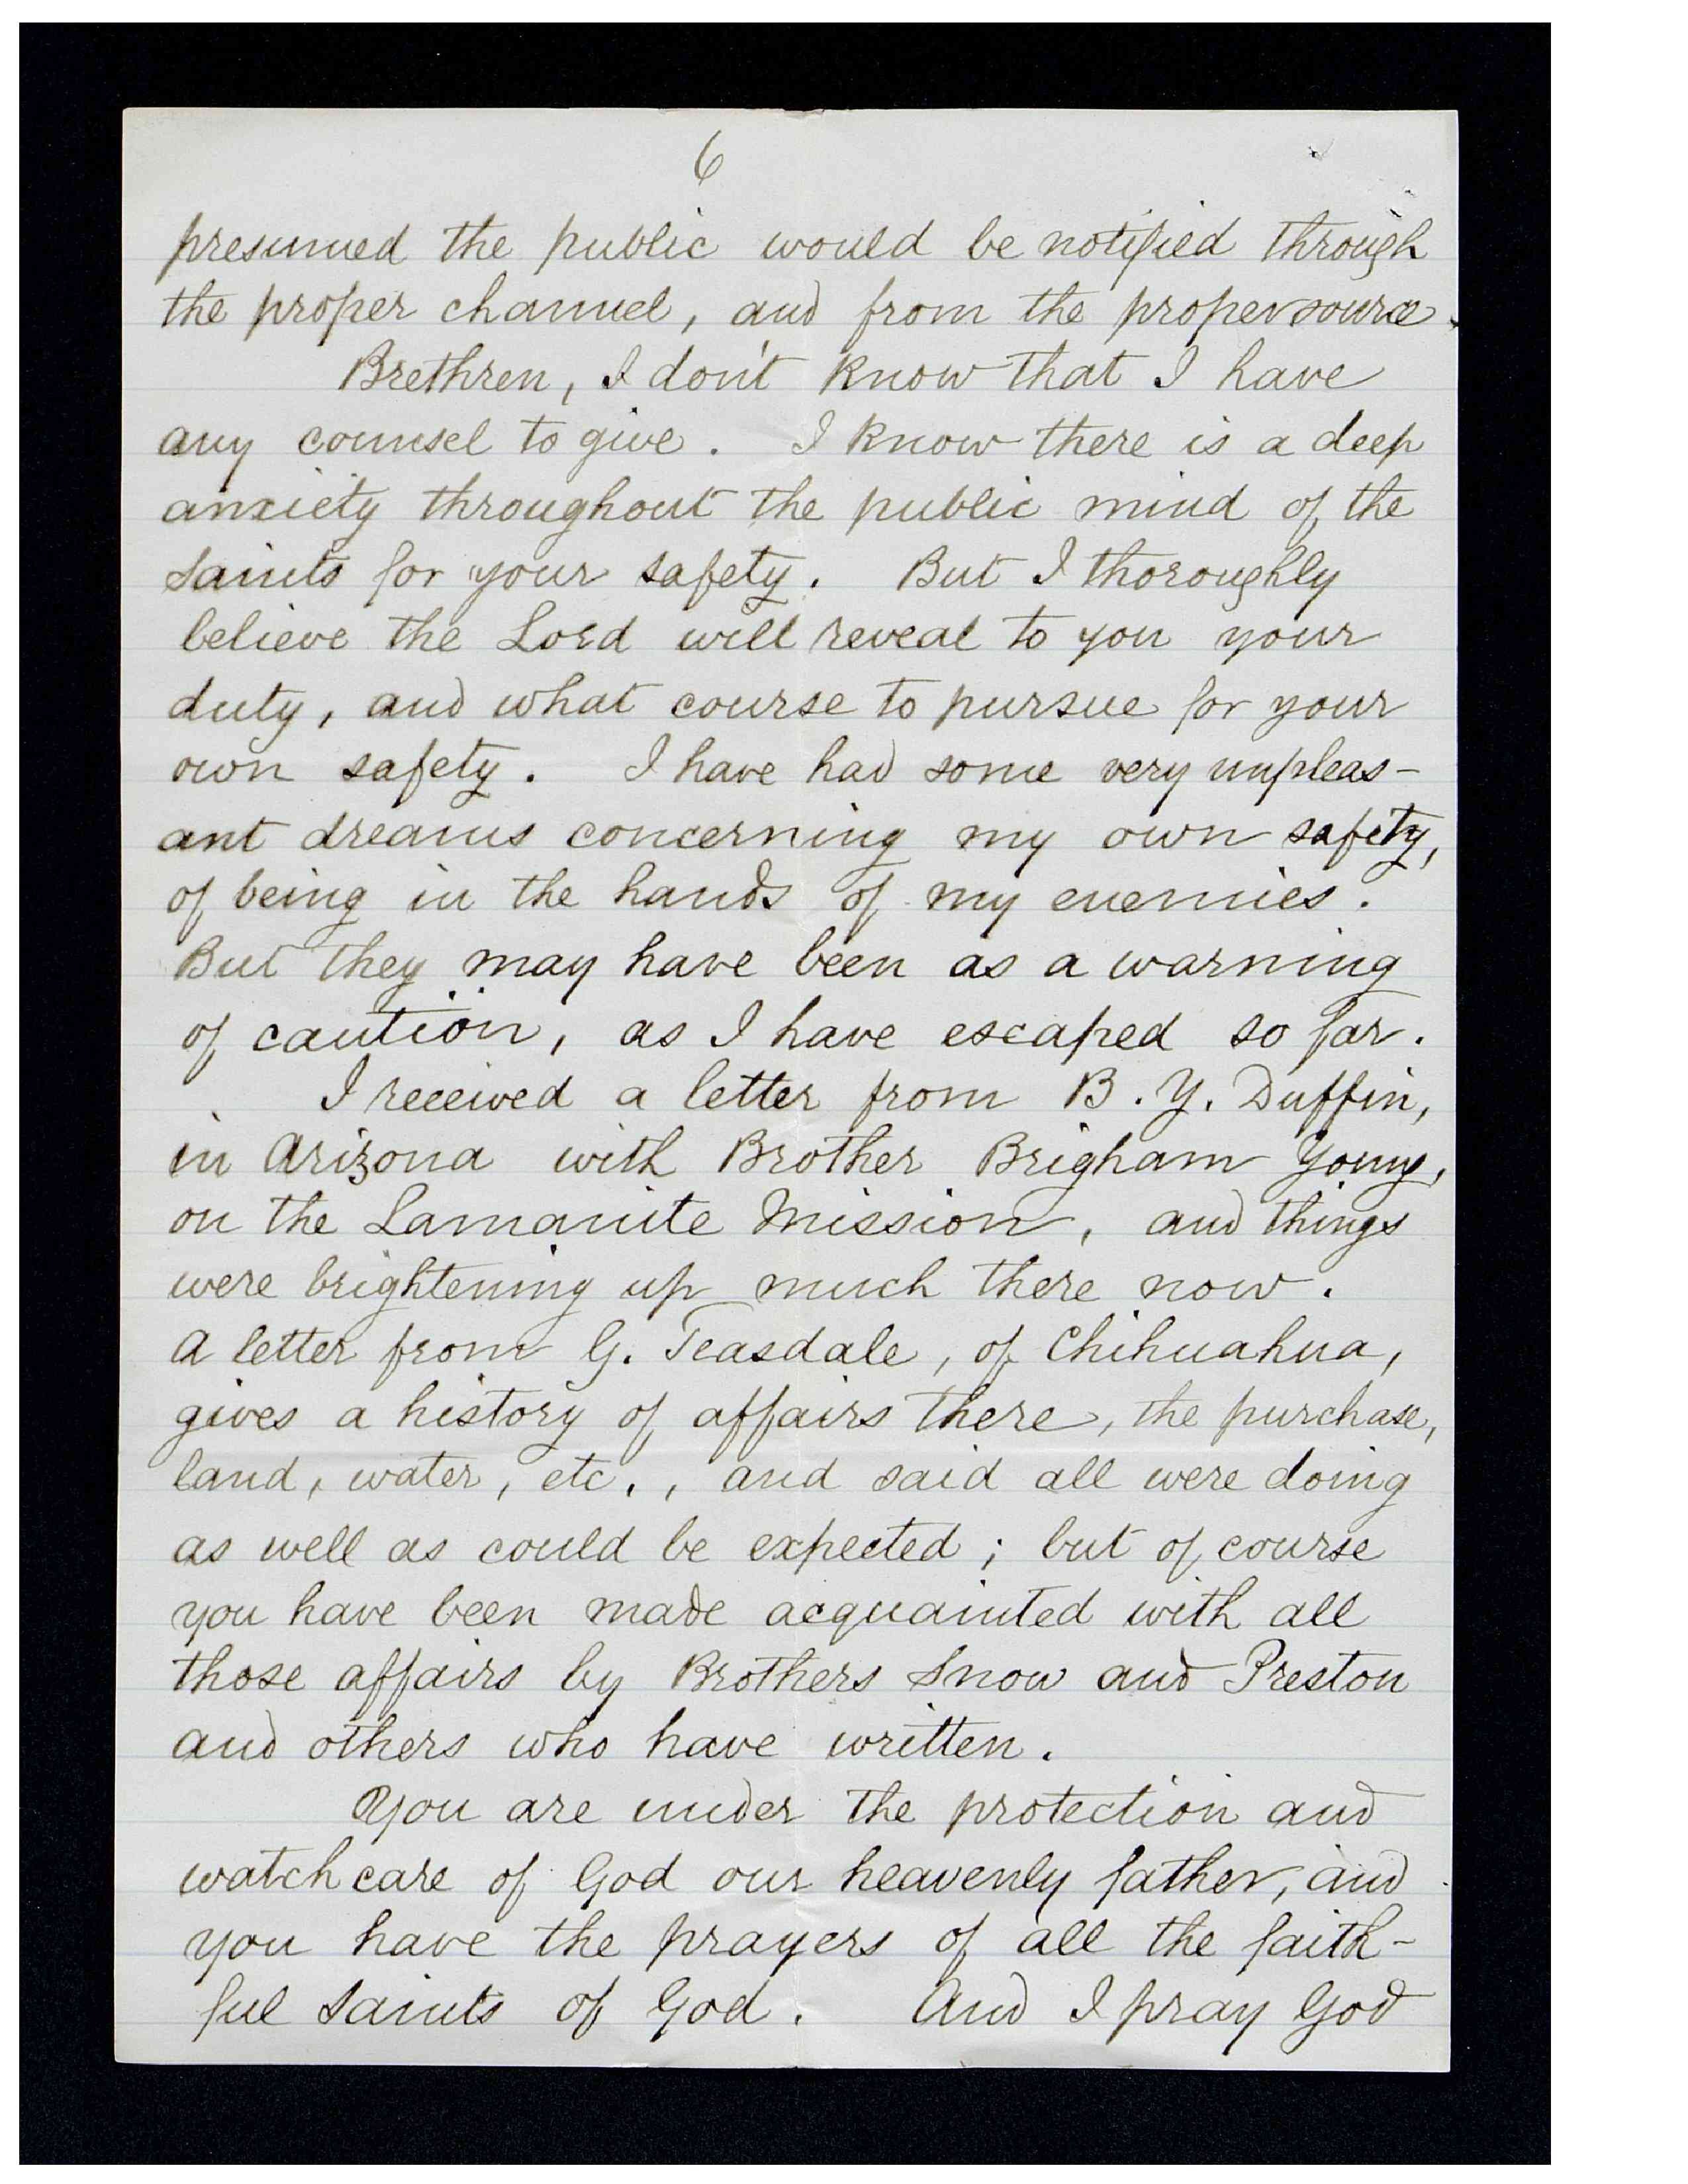 6
presumed the public would be notified through
the proper channel, and from the proper source.
Brethren, I don't know that I have
any counsel to give. I know there is a deep
anxiety throughout the public mind of the
Saints for your safety. But I thoroughly
believe the Lord will reveal to you your
duty, and what course to pursue for your
own safety. I have had some very unpleas-
ant dreams concerning my own safety,
of being in the hands of my enemies.
But they may have been as a warning
of caution, as I have escaped so far.
I received a letter from B. Y. Duffin,
in Arizona with Brother Brigham Young,
on the Lamanite Mission, and things
were brightening up much there now.
A letter from G. Teasdale, of Chihuahua,
gives a history of affairs there, the purchase,
land, water, etc., and said all were doing
as well as could be expected; but of course
you have been made acquainted with all
those affairs by Brothers Snow and Preston
and others who have written.
You are under the protection and
watch care of God our heavenly father, and
you have the prayers of all the faith-
ful Saints of God. And I pray God